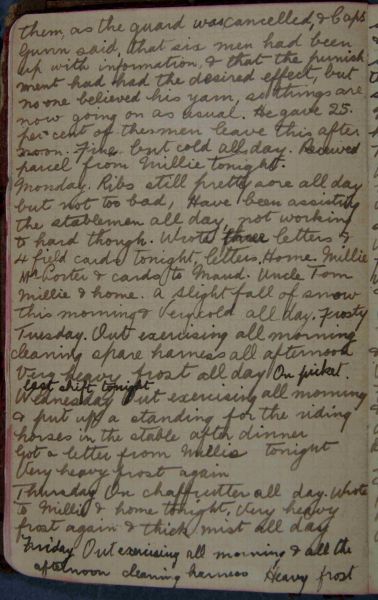 them, as the guard was cancelled, & Capt
Gunn said, that six men had been
up with information, & that the punish
ment had had the desired effect, but
no one believed his yarn, so things are
now going on as usual. He gave 25.
per cent of the men leave this after
noon. Fine but cold all day. Received
parcel from Millie tonight.
Monday. Ribs still pretty sore all day
but not too bad, Have been assisting
the stablemen all day, not working
to hard though. Wrote three letters &
4 field cards tonight, letters, Home. Millie
Mrs Porter & cards to Maud. Uncle Tom
Millie & home. A slight fall of snow
this morning & very cold all day. Frosty
Tuesday. Out exercising all morning
cleaning spare harness all afternoon
Very heavy frost all day On picket.
last shift tonight
Wednesday Out exercising all morning
& put up a standing for the riding
horses in the stable after dinner
Got a letter from Millie tonight
Very heavy frost again
Thursday On chaffcutter all day. Wrote
to Millie & home tonight, Very heavy
frost again & thick mist all day
Friday Out exercising all morning & all the
afternoon cleaning harness Heavy frost